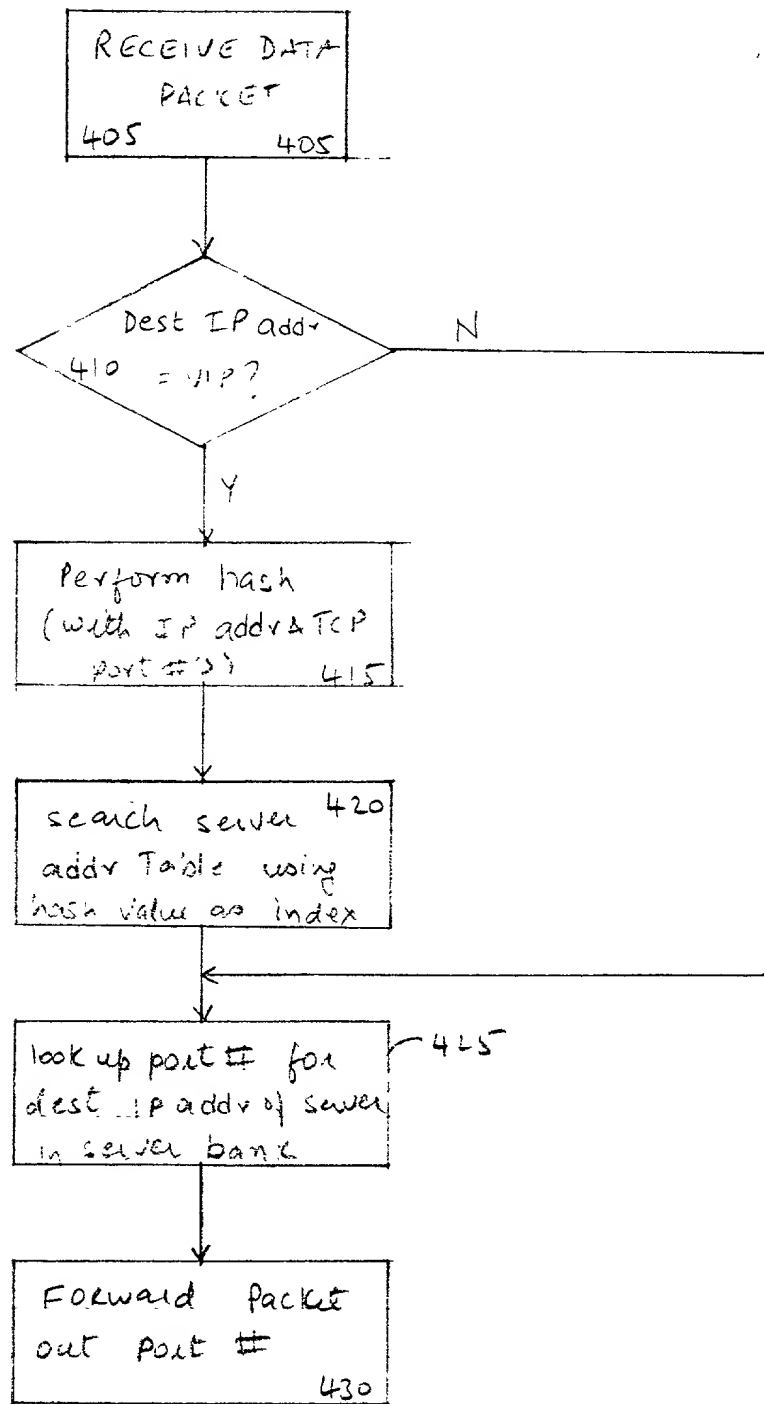 RECEIVE DATA
PACKET
405 405
Dest IP addr
410 = VIP?
N
Y
Perform hash
(with IP addr & TCP
port #'s)
415
420
search server
addr Table using
hash value as index
look up port # for
dest IP addr of server
in server bank
425
Forward Packet
out Port #
430